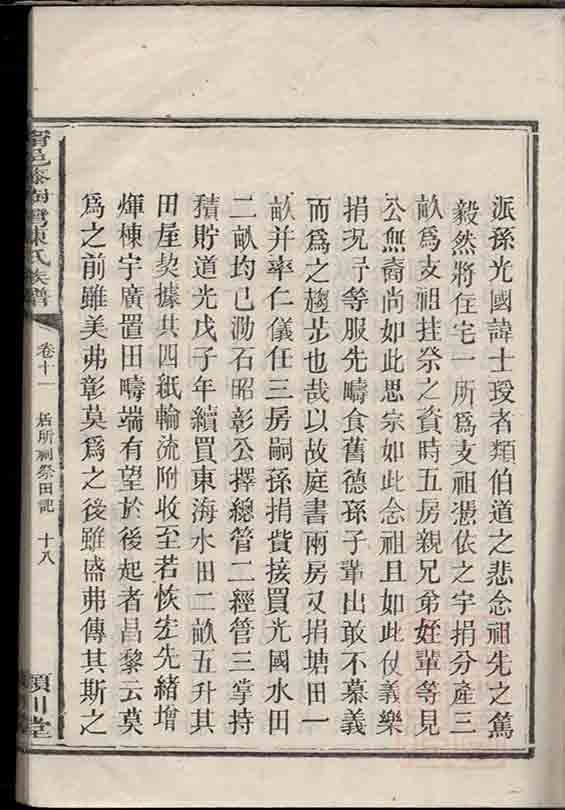 派孫光國諱士𤦪者類伯道之悲念祖先之篤
毅然將住宅一所爲支祖憑依之宇捐分產三
畝爲支祖挂祭之資時五房親兄弟姪輩等見
公無裔尚如此思宗如此念祖且如此仗義樂
捐況予等服先疇食舊德孫子軰出敢不慕義
而爲之趨步也哉以故庭書兩房又捐塘田一
畝并率仁儀任三房嗣孫捐費接買光國水田
二畝均已泐石昭彰公擇總管二經管三掌持
積貯道光戊子年續買東海水田二畝五升其
田屋契據共四紙輪流附收至若恢宏先緒增
煇棟宇廣置田疇端有望於後起者昌黎云莫
爲之前雖美弗彰莫爲之後雖盛弗傳其斯之
陳氏族譜
卷十一
居所祠祭田記
十八
潁川堂